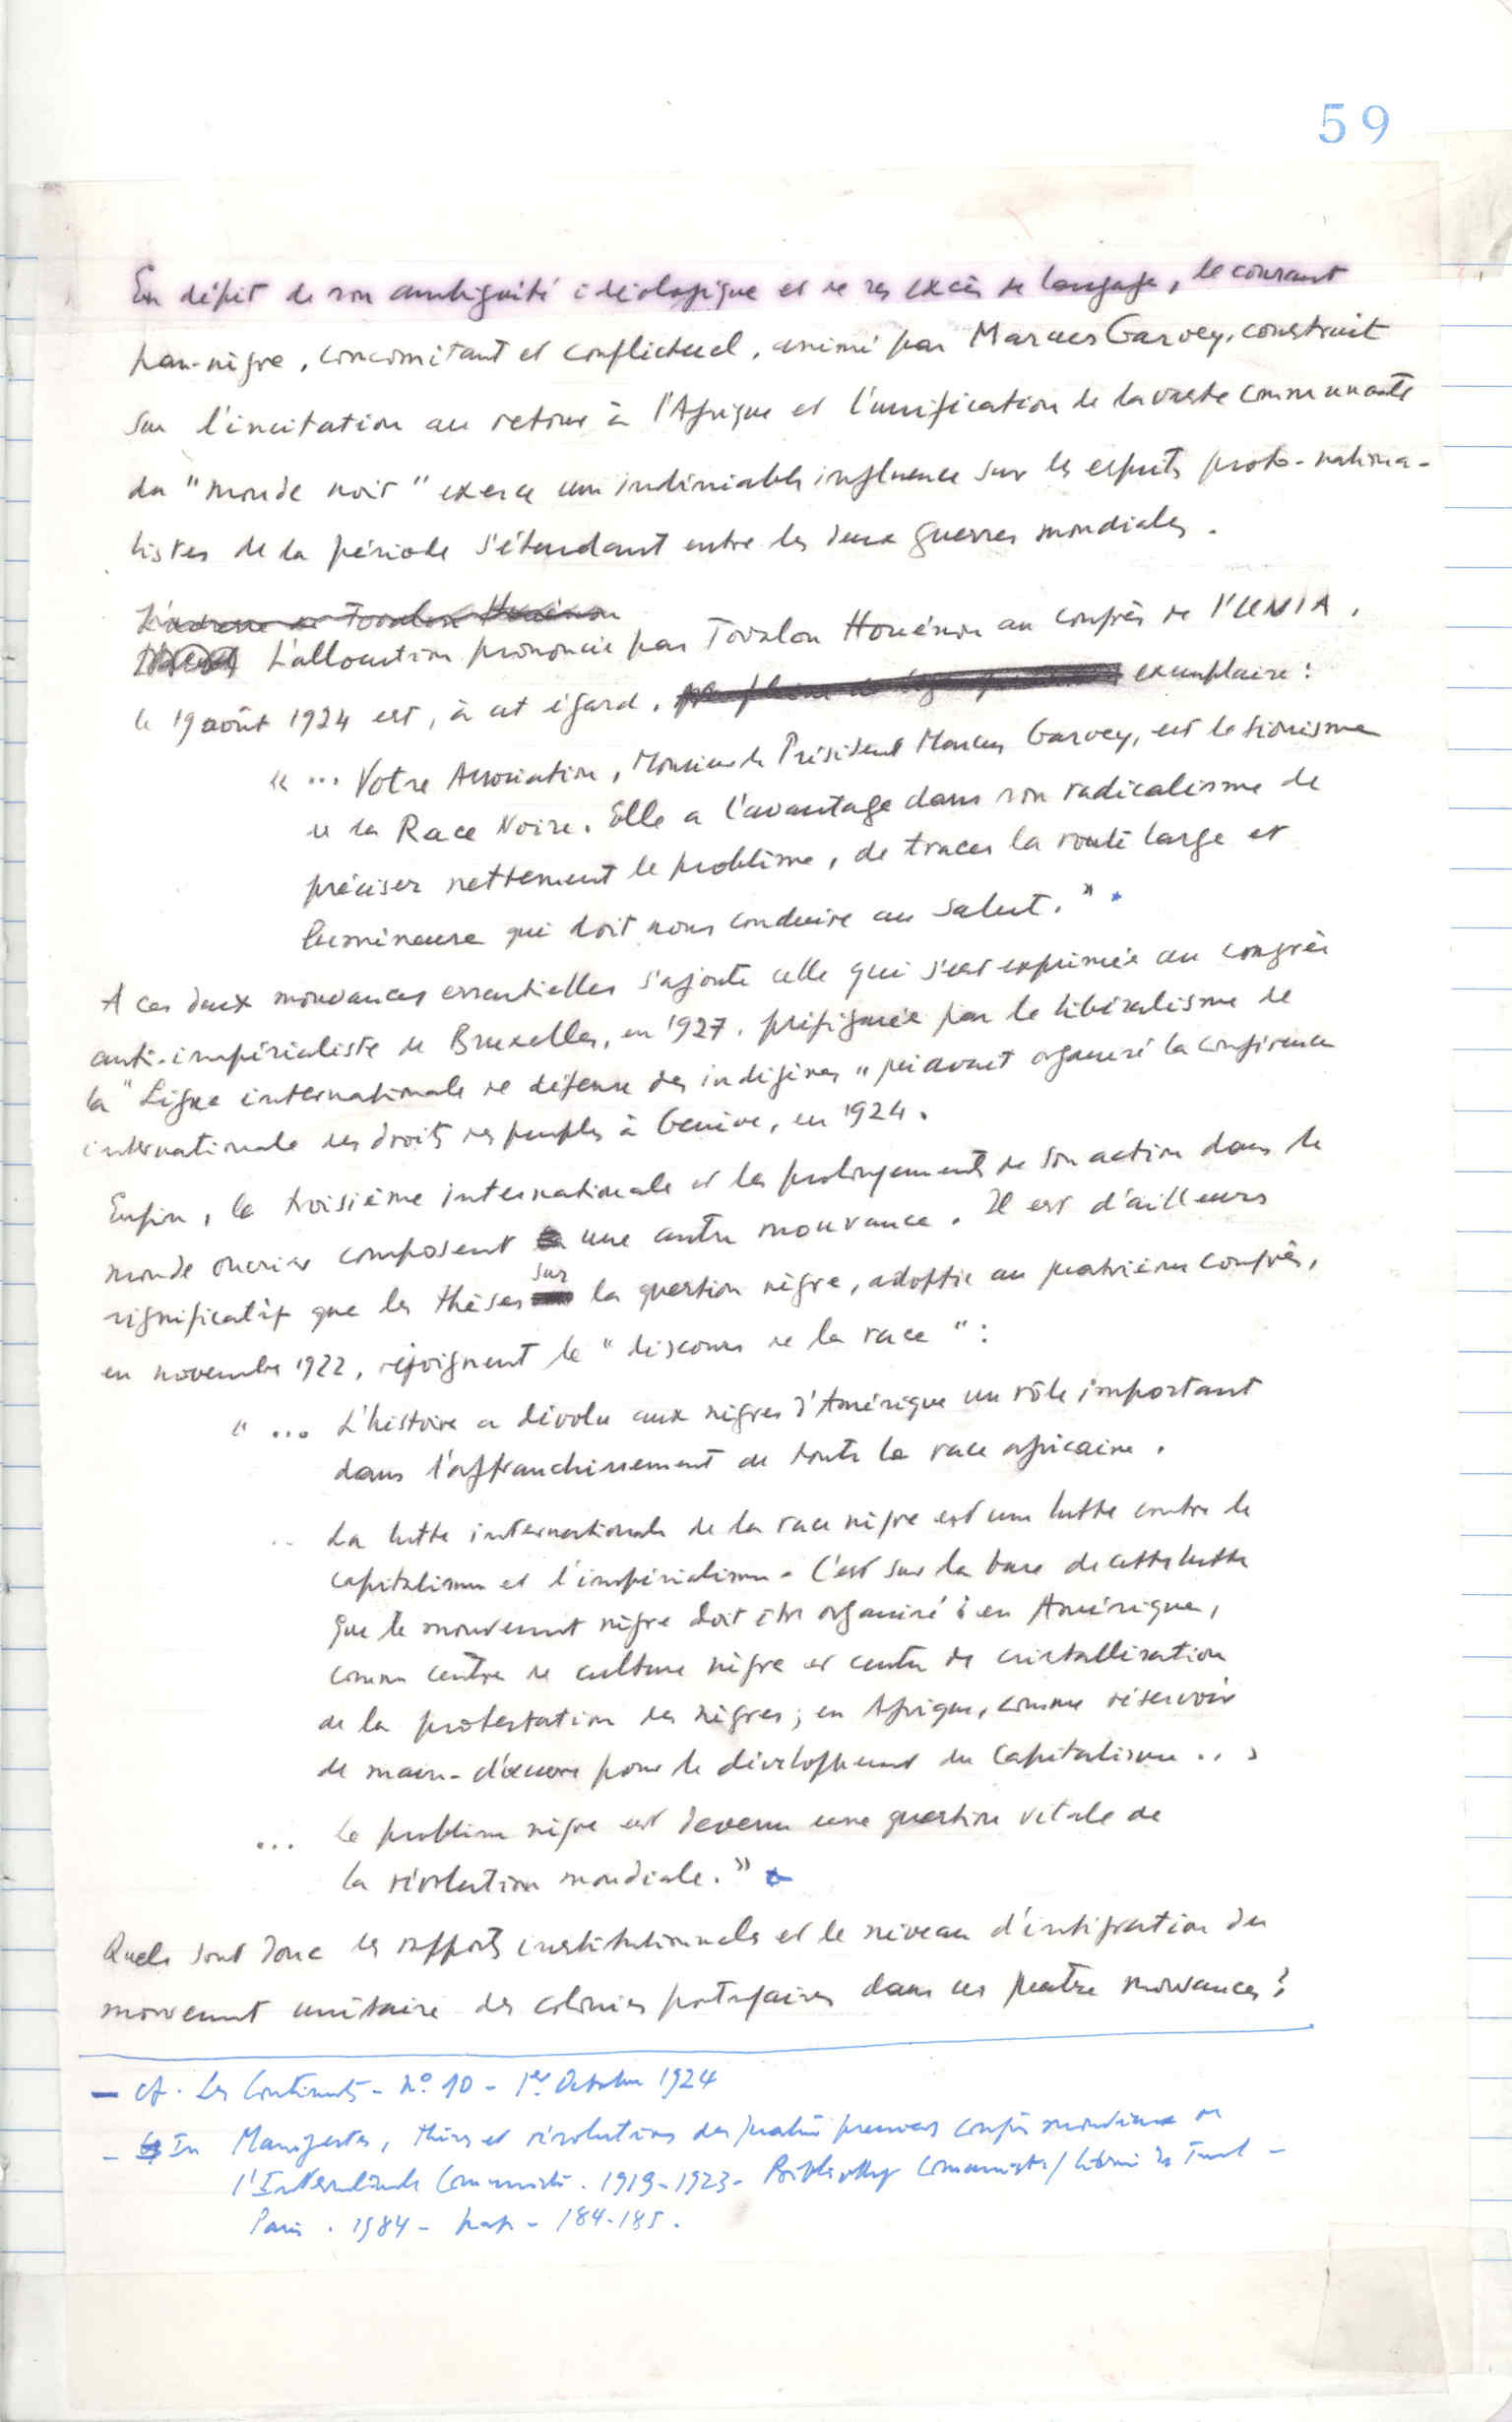 59
En dépit de son ambiguité idéologique et de ses excès de langage, le courant
pan-nègre, concomitant et conflictuel, animé par Marcus Garvey, construit
sur l'incitation au retour à l'Afrique et l'unification de la vaste communauté
du "monde noir" exerce une indéniable influence sur les esprits proto-nationa-
listes de la période s'étendant entre les deux guerres mondiales.
L'adresse de Tovalou Houénou
L'allocution prononcée par Tovalou Houénou au congrès de l'UNIA,
le 19 août 1924 est, à cet égard, exemplaire :
"... Votre Association, Monsieur le Président Marcus Garvey, est le sionisme
de la Race Noire. Elle a l'avantage dans son radicalisme de
préciser nettement le problème, de tracer la route large et
lumineuse qui doit nous conduire au salut." *
A ces deux mouvances essentielles s'ajoute celle qui s'est exprimée au congrès
anti-impérialiste de Bruxelles, en 1927, préfigurée par le libéralisme de
la "Ligue internationale de défense des indigènes" qui avait organisé la conférence
internationale des droits des peuples à Genève, en 1924.
Enfin, la troisième internationale et les prolongements de son action dans le
monde ouvrier composent une autre mouvance. Il est d'ailleurs
significatif que les thèses sur la question nègre, adoptée au quatrième congrès,
en novembre 1922, rejoignent le "discours de la race" :
"... L'histoire a dévolu aux nègres d'Amérique un rôle important
dans l'affranchissement de toute la race africaine.
.. La lutte internationale de la race nègre est une lutte contre le
capitalisme et l'impérialisme. C'est sur la base de cette lutte
que le mouvement nègre doit être organisé : en Amérique,
comme centre de culture nègre et centre de cristallisation
de la protestation des nègres ; en Afrique, comme réservoir
de main-d'œuvre pour le développement du Capitalisme ...
... Le problème nègre est devenu une question vitale de
la révolution mondiale." *
Quels sont donc les rapports institutionnels et le niveau d'intégration du
mouvement unitaire des colonies portugaises dans ces quatre mouvances ?
- cf. Les Continents - n° 10 - 1er Octobre 1924
- In Manifestes, thèses et résolutions des quatre premiers congrès mondiaux de
l'Internationale Communiste. 1919-1923 - Bibliothèque Communiste / Librairie du Travail -
Paris . 1984 - pap - 184-185.